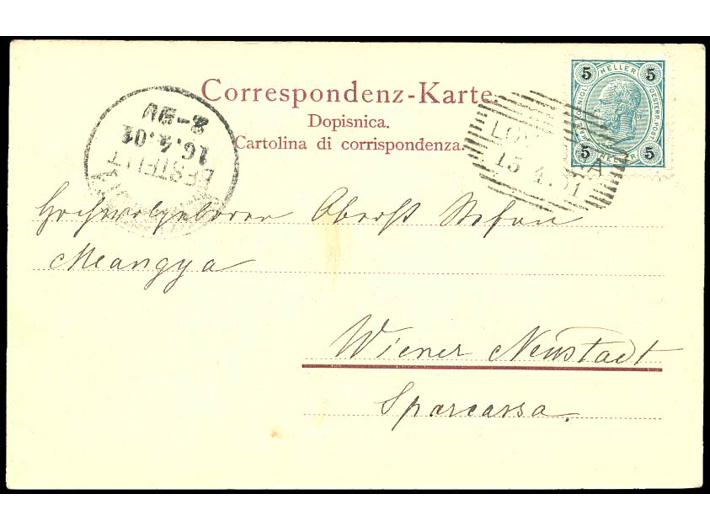 Correspondenz-Karte.
Dopisnica.
Cartolina di corrispondenza.
5 HELLER 5
5 HELLER 5
15.4.01
BESTELLT
16.4.01
Hochwolgeboren Oberst Stefan
Meangya
Wiener Neustadt
Sparcassa.